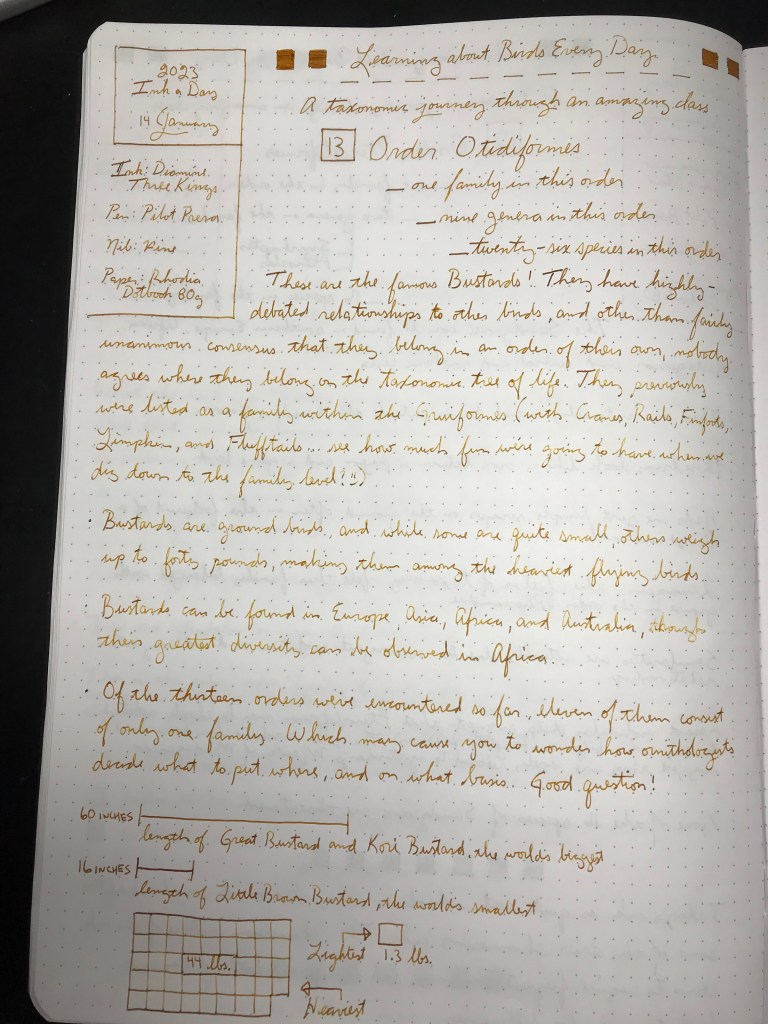 2023
Ink a Day
14 January
Ink: Diamine
Three Kings
Pen: Pilot Prera
Nib: Fine
Paper: Rhodia
Dotbook 80g
Learning about Birds Every Day
A taxonomic journey through an amazing class
13 Order Otidiformes
— one family in this order
— nine genera in this order
— twenty-six species in this order
These are the famous Bustards! They have highly-
debated relationships to other birds, and other than fairly
unanimous consensus that they belong in an order of their own, nobody
agrees where they belong on the taxonomic tree of life. They previously
were listed as a family within the Gruiformes (with Cranes, Rails, Finfoots,
Limpkin, and Flufftails... see how much fun we're going to have when we
dig down to the family level! :))
· Bustards are ground birds, and while some are quite small, others weigh
up to forty pounds, making them among the heaviest flying birds.
· Bustards can be found in Europe, Asia, Africa, and Australia, though
their greatest diversity can be observed in Africa.
· Of the thirteen orders we've encountered so far, eleven of them consist
of only one family. Which may cause you to wonder how ornithologists
decide what to put where, and on what basis. Good question!
60 INCHES
length of Great Bustard and Kori Bustard, the world's biggest
16 INCHES
length of Little Brown Bustard, the world's smallest
44 lbs.
Lightest 1.3 lbs.
Heaviest